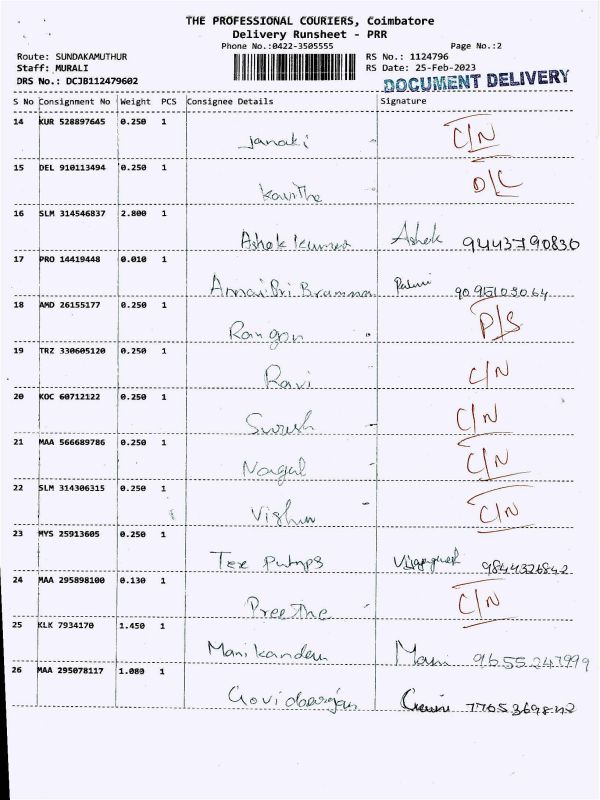 THE PROFESSIONAL COURIERS, Coimbatore
Delivery Runsheet - PRR
Phone No.:0422-3505555 Page No.:2
Route: SUNDAKAMUTHUR RS No.: 1124796
Staff: MURALI RS Date: 25-Feb-2023
DRS No.: DCJB112479602 DOCUMENT DELIVERY
S No Consignment No Weight PCS Consignee Details Signature
14 KUR 528897645 0.250 1 Janaki C/N
15 DEL 910113494 0.250 1 Kavitha D/L
16 SLM 314546837 2.800 1 Ashok Kumar Ashok 9443790830
17 PRO 14419448 0.010 1 Annai Bri Bramma
18 AMD 26155177 0.250 1 Rangan P/S
19 TRZ 330605120 0.250 1 Ravi C/N
20 KOC 60712122 0.250 1 Suresh C/N
21 MAA 566689786 0.250 1 Nagal C/N
22 SLM 314306315 0.250 1 Vishnu C/N
23 MYS 25913605 0.250 1 Tex Pumps 9844326842
24 MAA 295898100 0.130 1 Preethe C/N
25 KLK 7934170 1.450 1 Manikandan Mani 9655247999
26 MAA 295078117 1.080 1